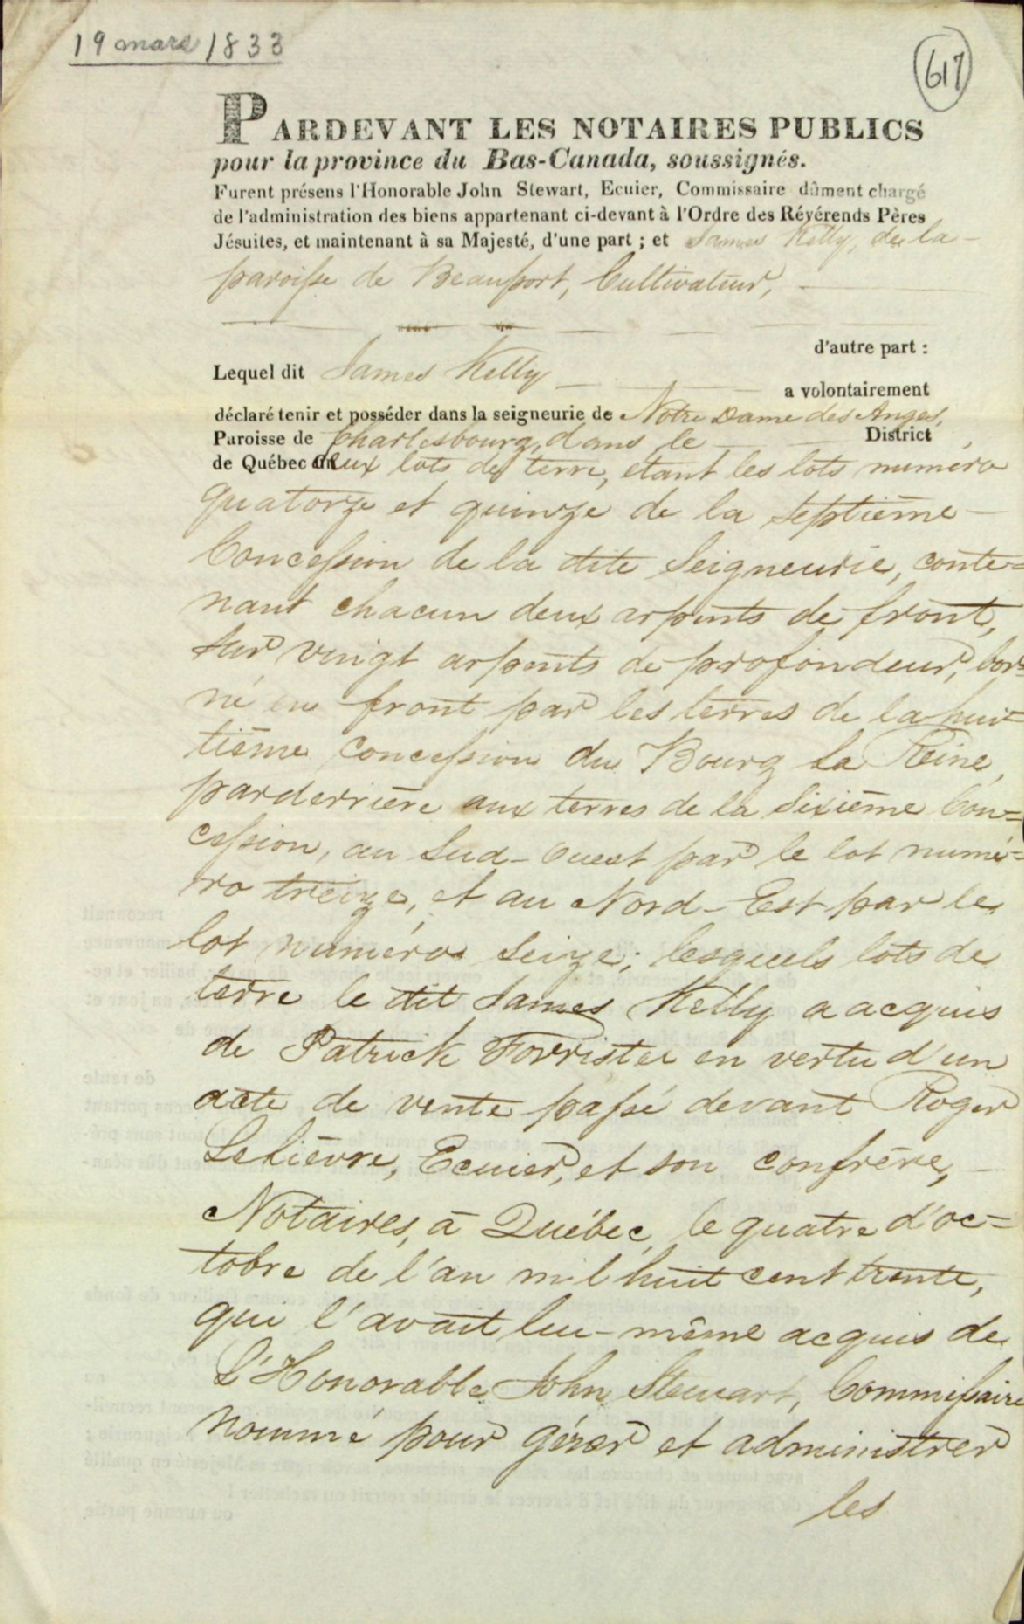 19 mars 1833
617
PARDEVANT LES NOTAIRES PUBLICS
pour la province du Bas-Canada, soussignés.
Furent présens l'Honorable John Stewart, Ecuier, Commissaire dûment chargé
de l'administration des biens appartenant ci-devant à l'Ordre des Révérends Pères
Jésuites, et maintenant à sa Majesté, d'une part ; et James Kelly, de la
paroisse de Beauport, Cultivateur,
d'autre part :
Lequel dit James Kelly
a volontairement
déclaré tenir et posséder dans la seigneurie de Notre Dame des Anges,
Paroisse de Charlesbourg, dans le District
de Québec deux lots de terre, étant les lots numéro
quatorze et quinze de la septième
Concession de la dite Seigneurie, conte=
nant chacun deux arpents de front,
sur vingt arpents de profondeur, bor=
né en front par les terres de la hui=
tième concession du Bourg La Reine,
parderrière aux terres de la sixième Con=
cession, au Sud-Ouest par le lot numé=
ro treize, et au Nord-Est par le
lot numéro seize; lesquels lots de
terre le dit James Kelly a acquis
de Patrick Forrister en vertu d'un
acte de vente passé devant Roger
Lelièvre, Ecuier, et son confrère,
Notaires, à Québec, le quatre d'oc=
tobre de l'an mil huit cent trente,
qui l'avait lui-même acquis de
l'Honorable John Stewart, Commissaire
nommé pour gérer et administrer
les